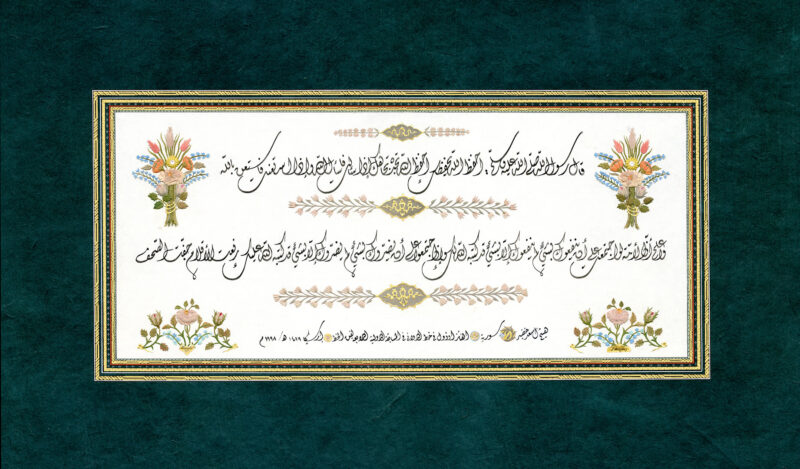 قال رسول الله صلى الله عليه وسلم احفظ الله يحفظك احفظ الله تجده تجاهك إذا سألت فاسأل الله وإذا استعنت فاستعن بالله
واعلم أن الأمة لو اجتمعت على أن ينفعوك بشيء لم ينفعوك إلا بشيء قد كتبه الله لك وإن اجتمعوا على أن يضروك بشيء لم يضروك إلا بشيء قد كتبه الله عليك رفعت الأقلام وجفت الصحف
سورية الدولية الخط إرسيكا ١٤١٩ هـ / ١٩٩٨ م